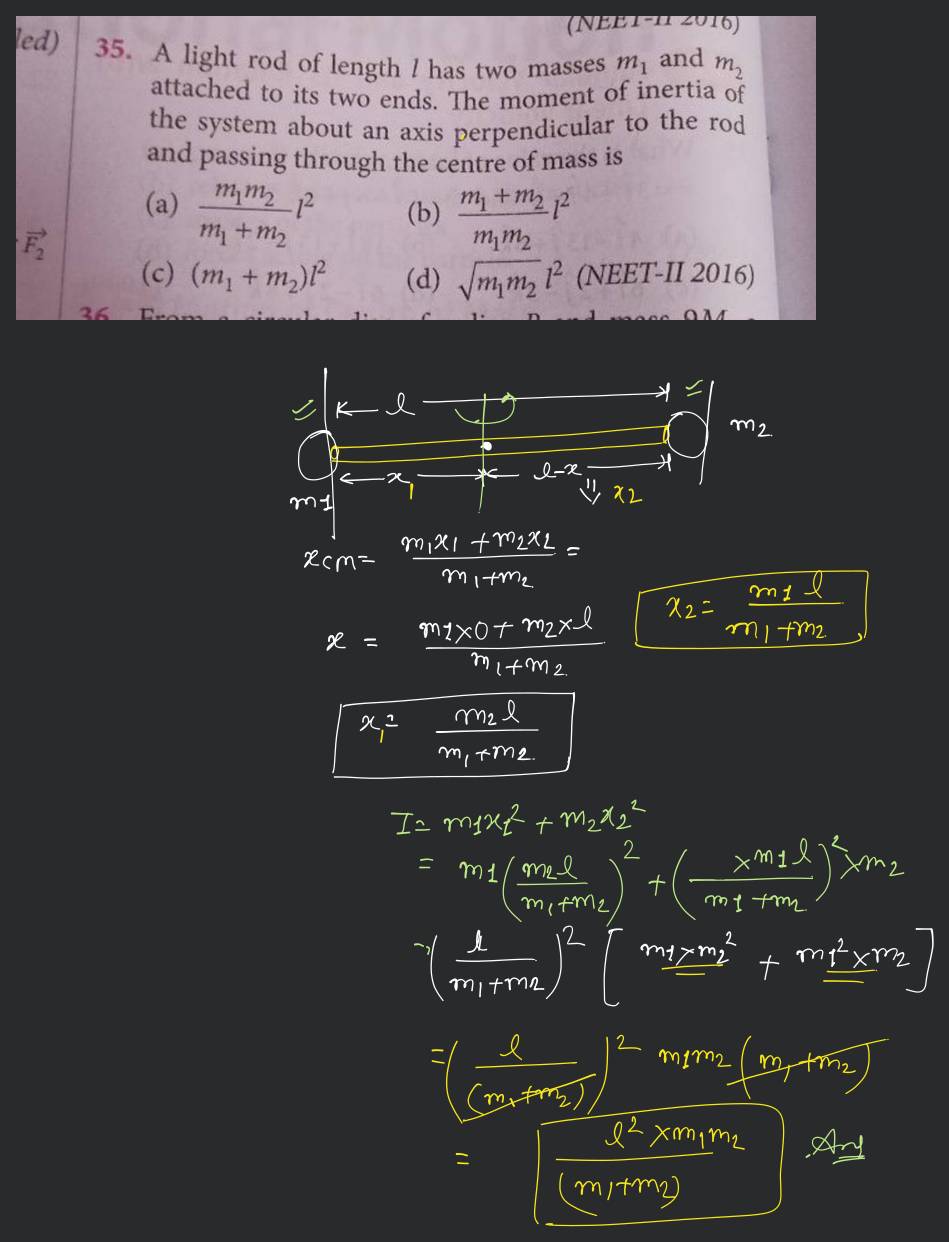 (NEET-II 2016)
led)
35. A light rod of length l has two masses m₁ and m₂
attached to its two ends. The moment of inertia of
the system about an axis perpendicular to the rod
and passing through the centre of mass is
(a) m₁m₂ / m₁ + m₂ l²
(b) m₁ + m₂ / m₁m₂ l²
F₂
(c) (m₁ + m₂)l²
(d) √m₁m₂ l² (NEET-II 2016)
36
l
m2
x₁
l-x
x2
m1
xcm = m₁x₁ + m₂x₂ / m₁+m₂ =
x₂ = m1 l / m₁+m₂
x = m1×0 + m₂×l / m₁+m₂
x₁ = m₂ l / m₁+m₂
I = m1x₁² + m₂x₂²
= m1 (m₂l / m₁+m₂)² + (×m1 l / m1+m₂)² × m₂
(l / m₁+m₂)² [m1×m₂² + m1²×m₂]
= (l / (m₁+m₂))² m1m₂ (m₁+m₂)
= l² × m₁m₂ / (m₁+m₂) Ans